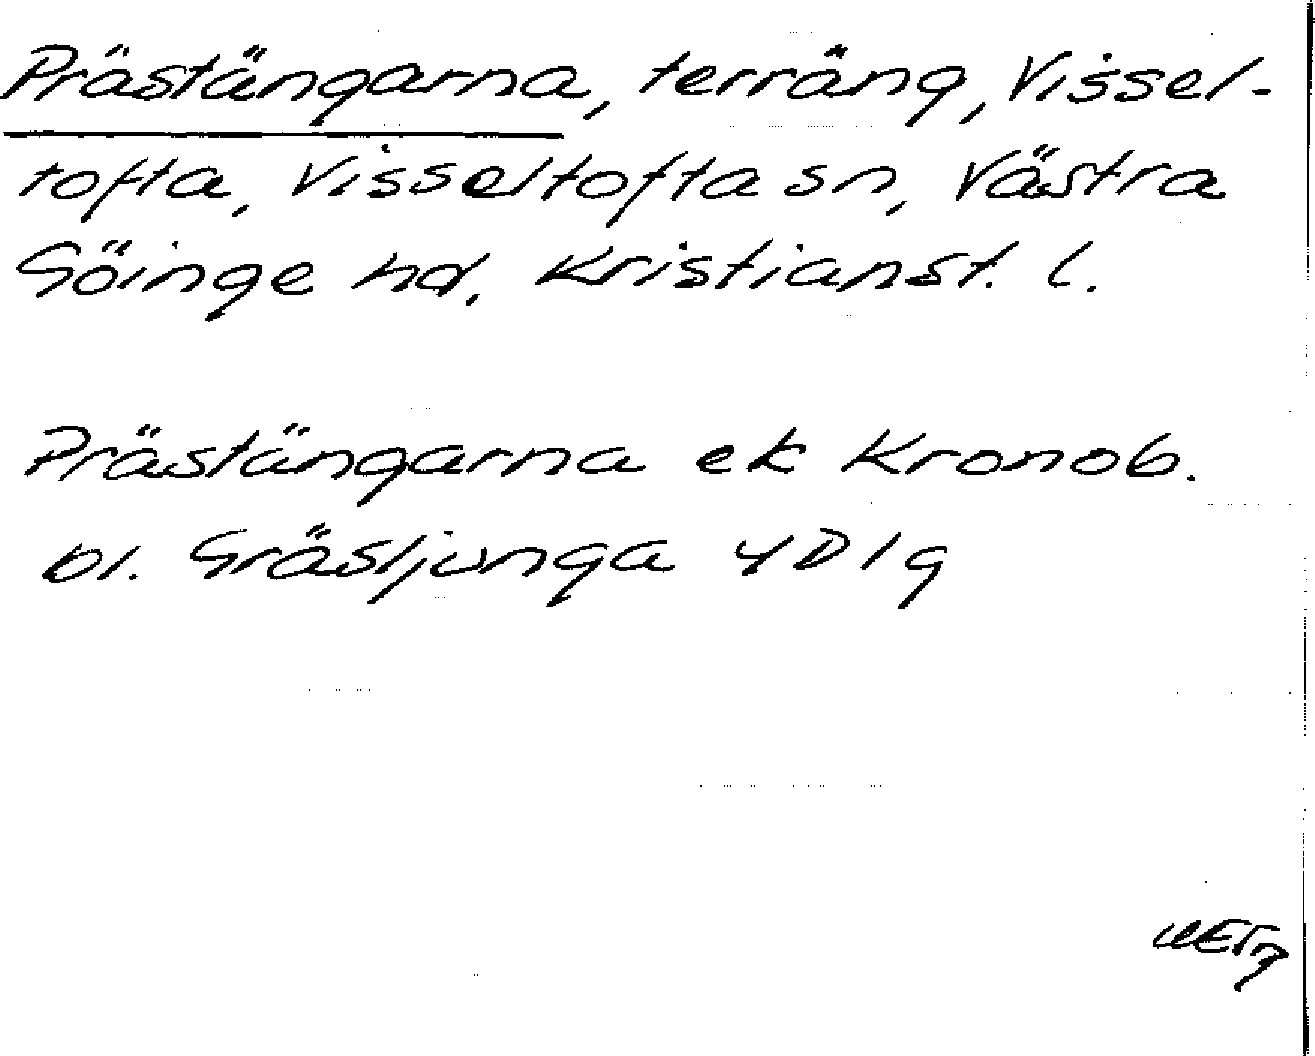 Prästängarna, terräng, Vissel-
tofta, Visseltofta sn, Västra
Göinge hd, Kristianst. l.
Prästängarna ek Kronob.
bl. Gräsljunga 4D1g